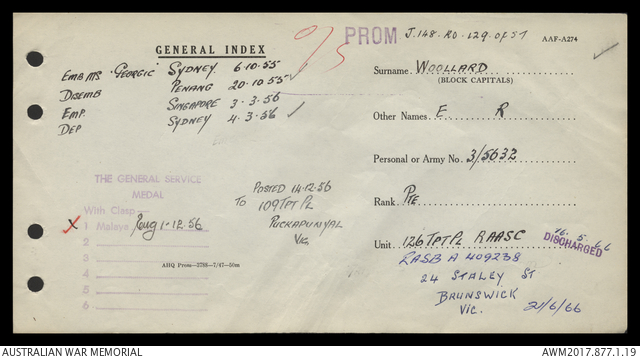 PROM J.148.RO.129.of 57 AAF-A274
GENERAL INDEX
EMB MS "GEORGIC" SYDNEY 6.10.55
DISEMB PENANG 20.10.55
EMP. SINGAPORE 3.3.56
DEP SYDNEY 4.3.56
Surname. WOOLLARD
(BLOCK CAPITALS)
Other Names. E R
Personal or Army No. 3/5632
Rank. PTE
Unit. 126 TPT PL RAASC
16.5.66
DISCHARGED
RASB A 409238
24 STALEY ST
BRUNSWICK
VIC.
21/6/66
THE GENERAL SERVICE
MEDAL
With Clasp
X 1 Malaya 1.12.56
2
3
4
5
6
POSTED 14.12.56
TO 109 TPT PL
PUCKAPUNYAL
VIC.
AHQ Prom—2788—7/47—50m
AUSTRALIAN WAR MEMORIAL
AWM2017.877.1.19